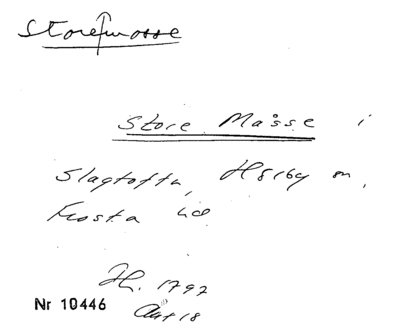 Storemosse
Store Måsse i
Slagtofta, Hörby sn,
Frosta hd
H. 1797
Akt 18
Nr 10446